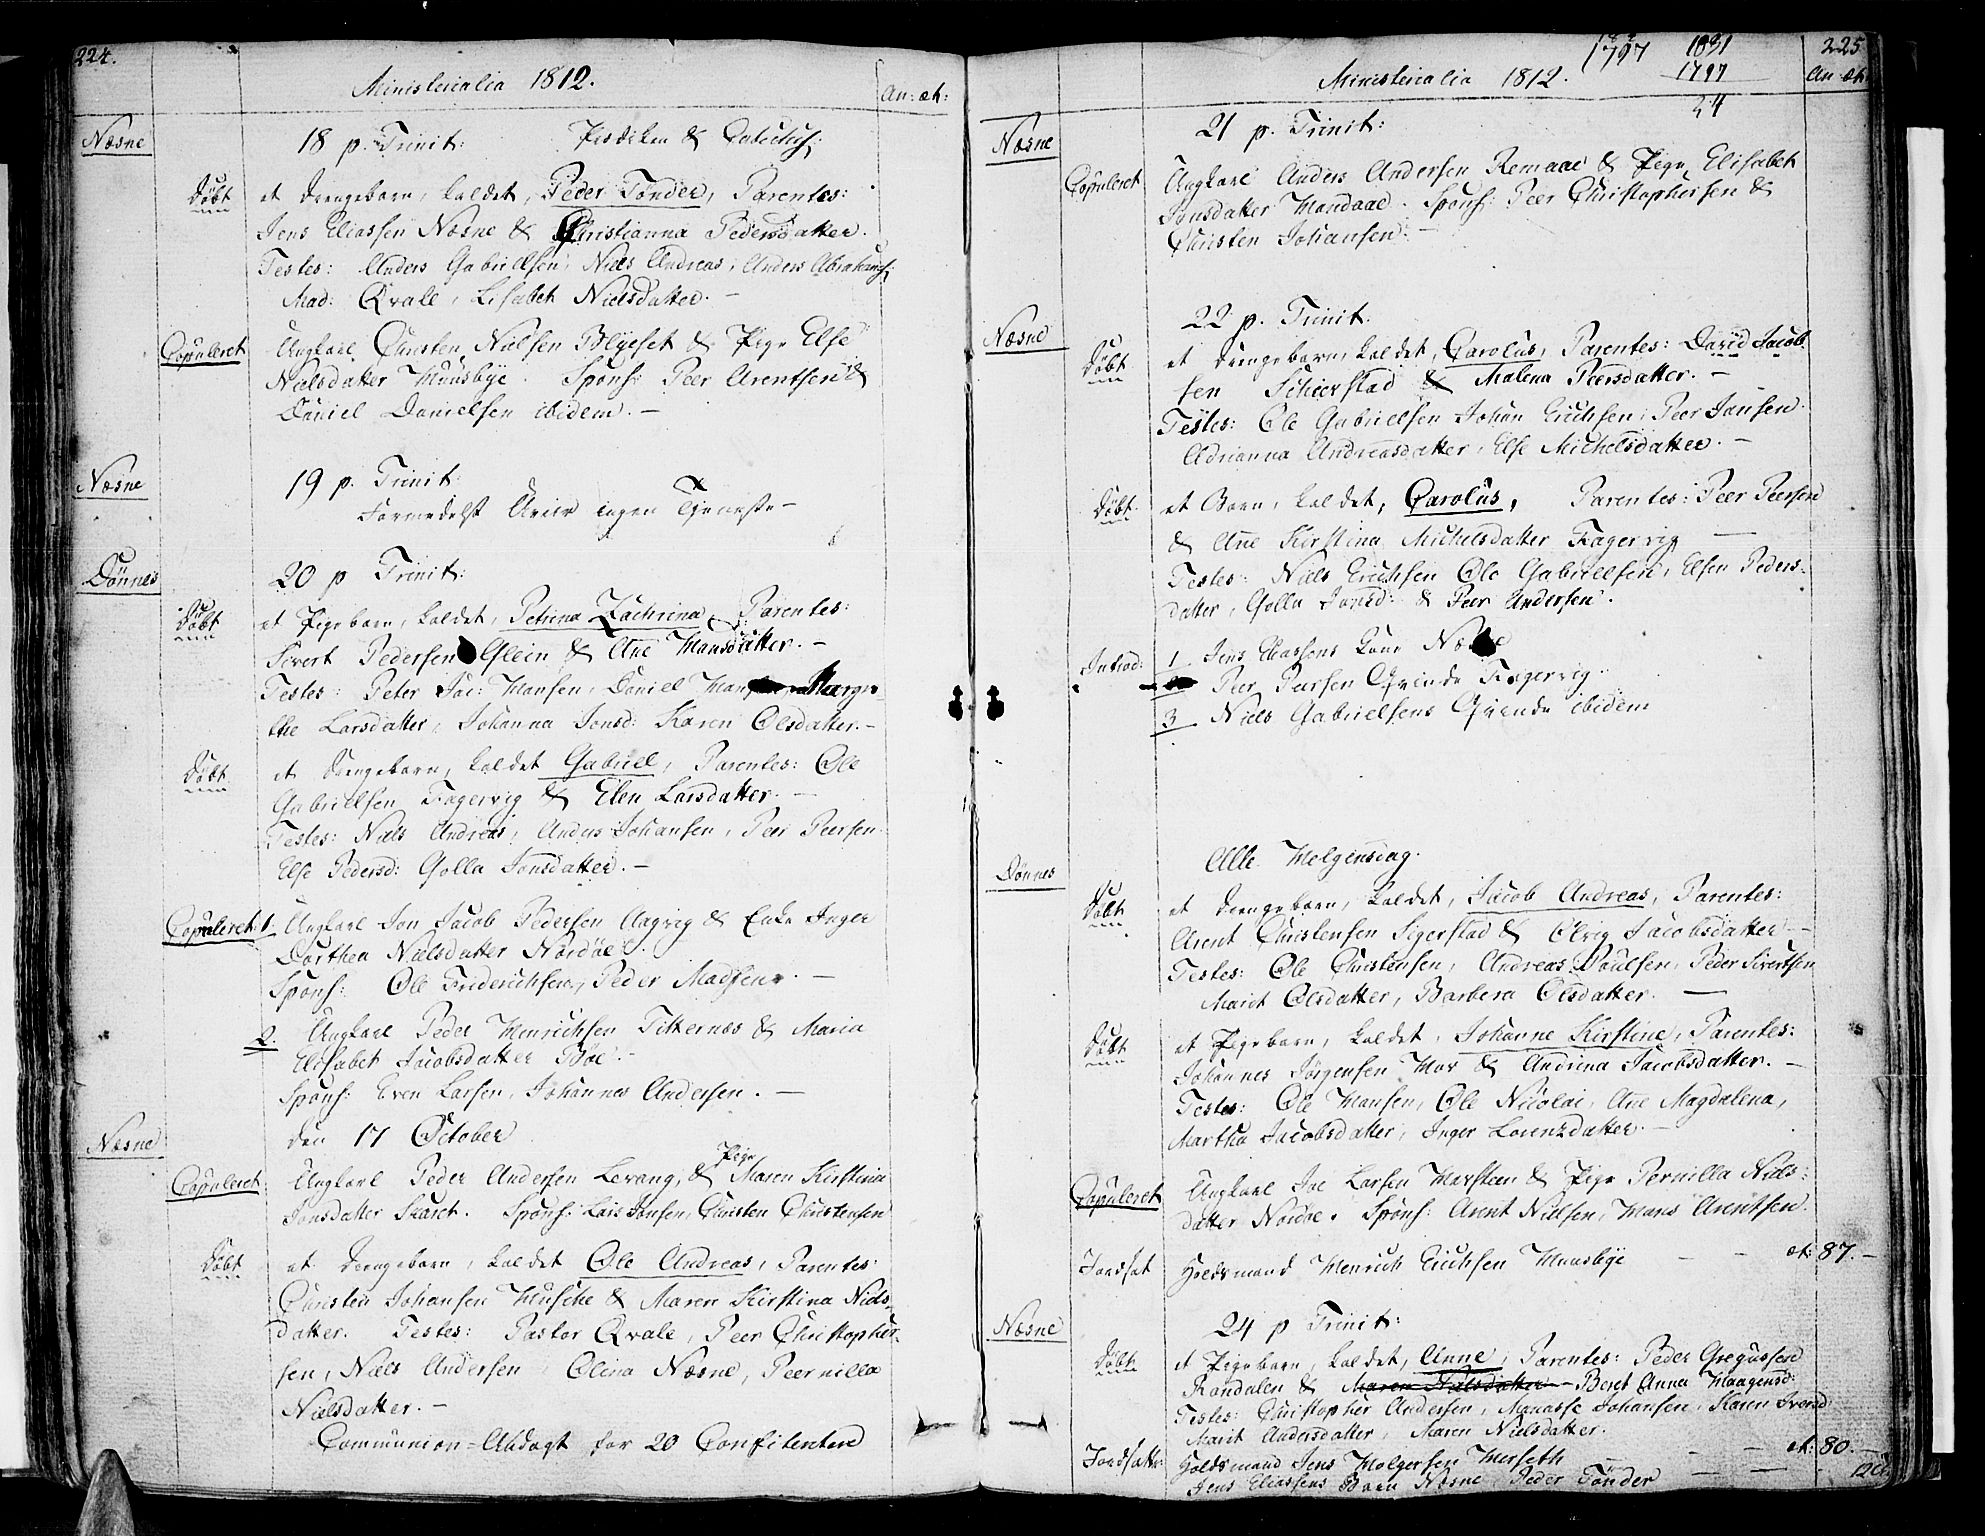 224.
Ministerialia 1812.
An: æt:
Næsne
18 p. Trinit:
Døbt
et Drengebarn, kaldet, Peder Tønder, Parentes:
Jens Eliassen Næsne & Christianna Pedersdatter.
Testes: Anders Gabrielsen, Niels Andreas, Anders Abrahams:
Mad: Qvale, Lisabet Nielsdatter. -
Copuleret
Ungkarl Christen Nielsen Blyeset & Pige Else
Nielsdatter Huusbye. Spons: Peer Arentsen &
Daniel Danielsen ibidem. -
Næsne
19 p. Trinit:
Formedelst Uveir ingen Tjeneste -
Dønnes
20 p Trinit:
Døbt
et Pigebarn, kaldet, Petrina Zachrina, Parentes:
Sivert Pedersen Glein & Ane Hansdatter. -
Testes: Peter Jac: Hansen, Daniel Margre-
the Larsdatter, Johanna Jonsd: Karen Olsdatter. -
Døbt
et Drengebarn, kaldet Gabriel, Parentes: Ole
Gabrielsen Fagervig & Elen Larsdatter. -
Testes: Niels Andreas, Anders Johansen, Peer Peersen
Else Pedersd: Golla Jonsdatter. -
Copuleret: 1.
Ungkarl Jon Jacob Pedersen Aagvig & Enke Inger
Dorthea Nielsdatter Nordøe.
Spons: Ole Friderichsen, Peder Madsen. -
2.
Ungkarl Peder Henrichsen Titternæs & Maria
Elisabet Jacobsdatter Bøe. -
Spons: Even Larsen, Johannes Andersen. -
Næsne
den 17 October
Copuleret
Ungkarl Peder Andersen Levang, & Pige Maren Kirstina
Jonsdatter Skaret. Spons: Lars Jonsen, Christen Christensen
Døbt
et Drengebarn, kaldet Ole Andreas, Parentes:
Christen Johansen Husche & Maren Kirstina Niels-
datter. Testes: Pastor Qvale, Peer Christopher-
sen, Niels Andersen, Olina Næsne, Peernilla
Nielsdatter. -
Communion-Aldagt for 20 Confitenter
1797
1831
1797
34
225
Ministerialia 1812.
An æt
Næsne
21 p. Trinit:
Copuleret
Ungkarl Anders Andersen Remaae & Pige Elisabet
Jonsdatter Handaae. Spons: Peer Christophersen &
Christen Johansen. -
Næsne
22 p. Trinit.
Døbt
et Drengebarn, kaldet, Carolus, Parentes: David Jacob
sen Scheerstad & Malena Peersdatter. -
Testes: Ole Gabrielsen Johan Erichsen, Peer Jansen.
Adrianna Andreasdatter, Else Michelsdatter. -
Døbt
et Barn, kaldet, Carolus, Parentes: Peer Peersen
& Ane Kirstina Michelsdatter Fagervig -
Testes: Niels Erichsen Ole Gabrielsen, Elsen Peders-
datter, Golla Jonsd: & Peer Andersen.
Introd:
1 Jens Eliassens Kone Næsne
Peer Peersen Qvinde Fagervig.
3 Niels Gabrielsens Qvinde ibidem
Dønnes
Alle Helgensdag.
Døbt
et Drengebarn, kaldet, Jacob Andreas, Parentes:
Arent Christensen Sigerstad & Olrig Jacobsdatter -
Testes: Ole Christensen, Andreas Poulsen, Peder Sivertsen
Marit Olsdatter, Barbera Olsdatter. -
Døbt
et Pigebarn, kaldet, Johanne Kirstine, Parentes:
Johannes Jørgensen Hov & Andrina Jacobsdatter. -
Testes: Ole Hansen, Ole Nicolai, Ane Magdalena,
Martha Jacobsdatter, Inger Lorenzdatter. -
Copuleret
Ungkarl Joe Larsen Havsteen & Pige Pernilla Niels-
datter Nordøe. Spons: Arent Nielsen, Hans Arentsen.
Jordsat
Holdsmand Henrich Erichsen Huusbye - - æt: 87. -
Næsne
24 p Trinit:
Døbt
et Pigebarn, kaldet, Anne, Parentes: Peder Gregussen
Randalen & Maren Nielsdatter - Beret Anna Haagensd:
Testes: Christopher Andersen, Manasse Johansen, Karen Iversd:
Marit Andersdatter, Maren Nielsdatter.
Jordsatte
Holdsmand Jens Holgersen Herseth - - æt: 80. -
Jens Eliassens Barn Næsne, Peder Tønder - -